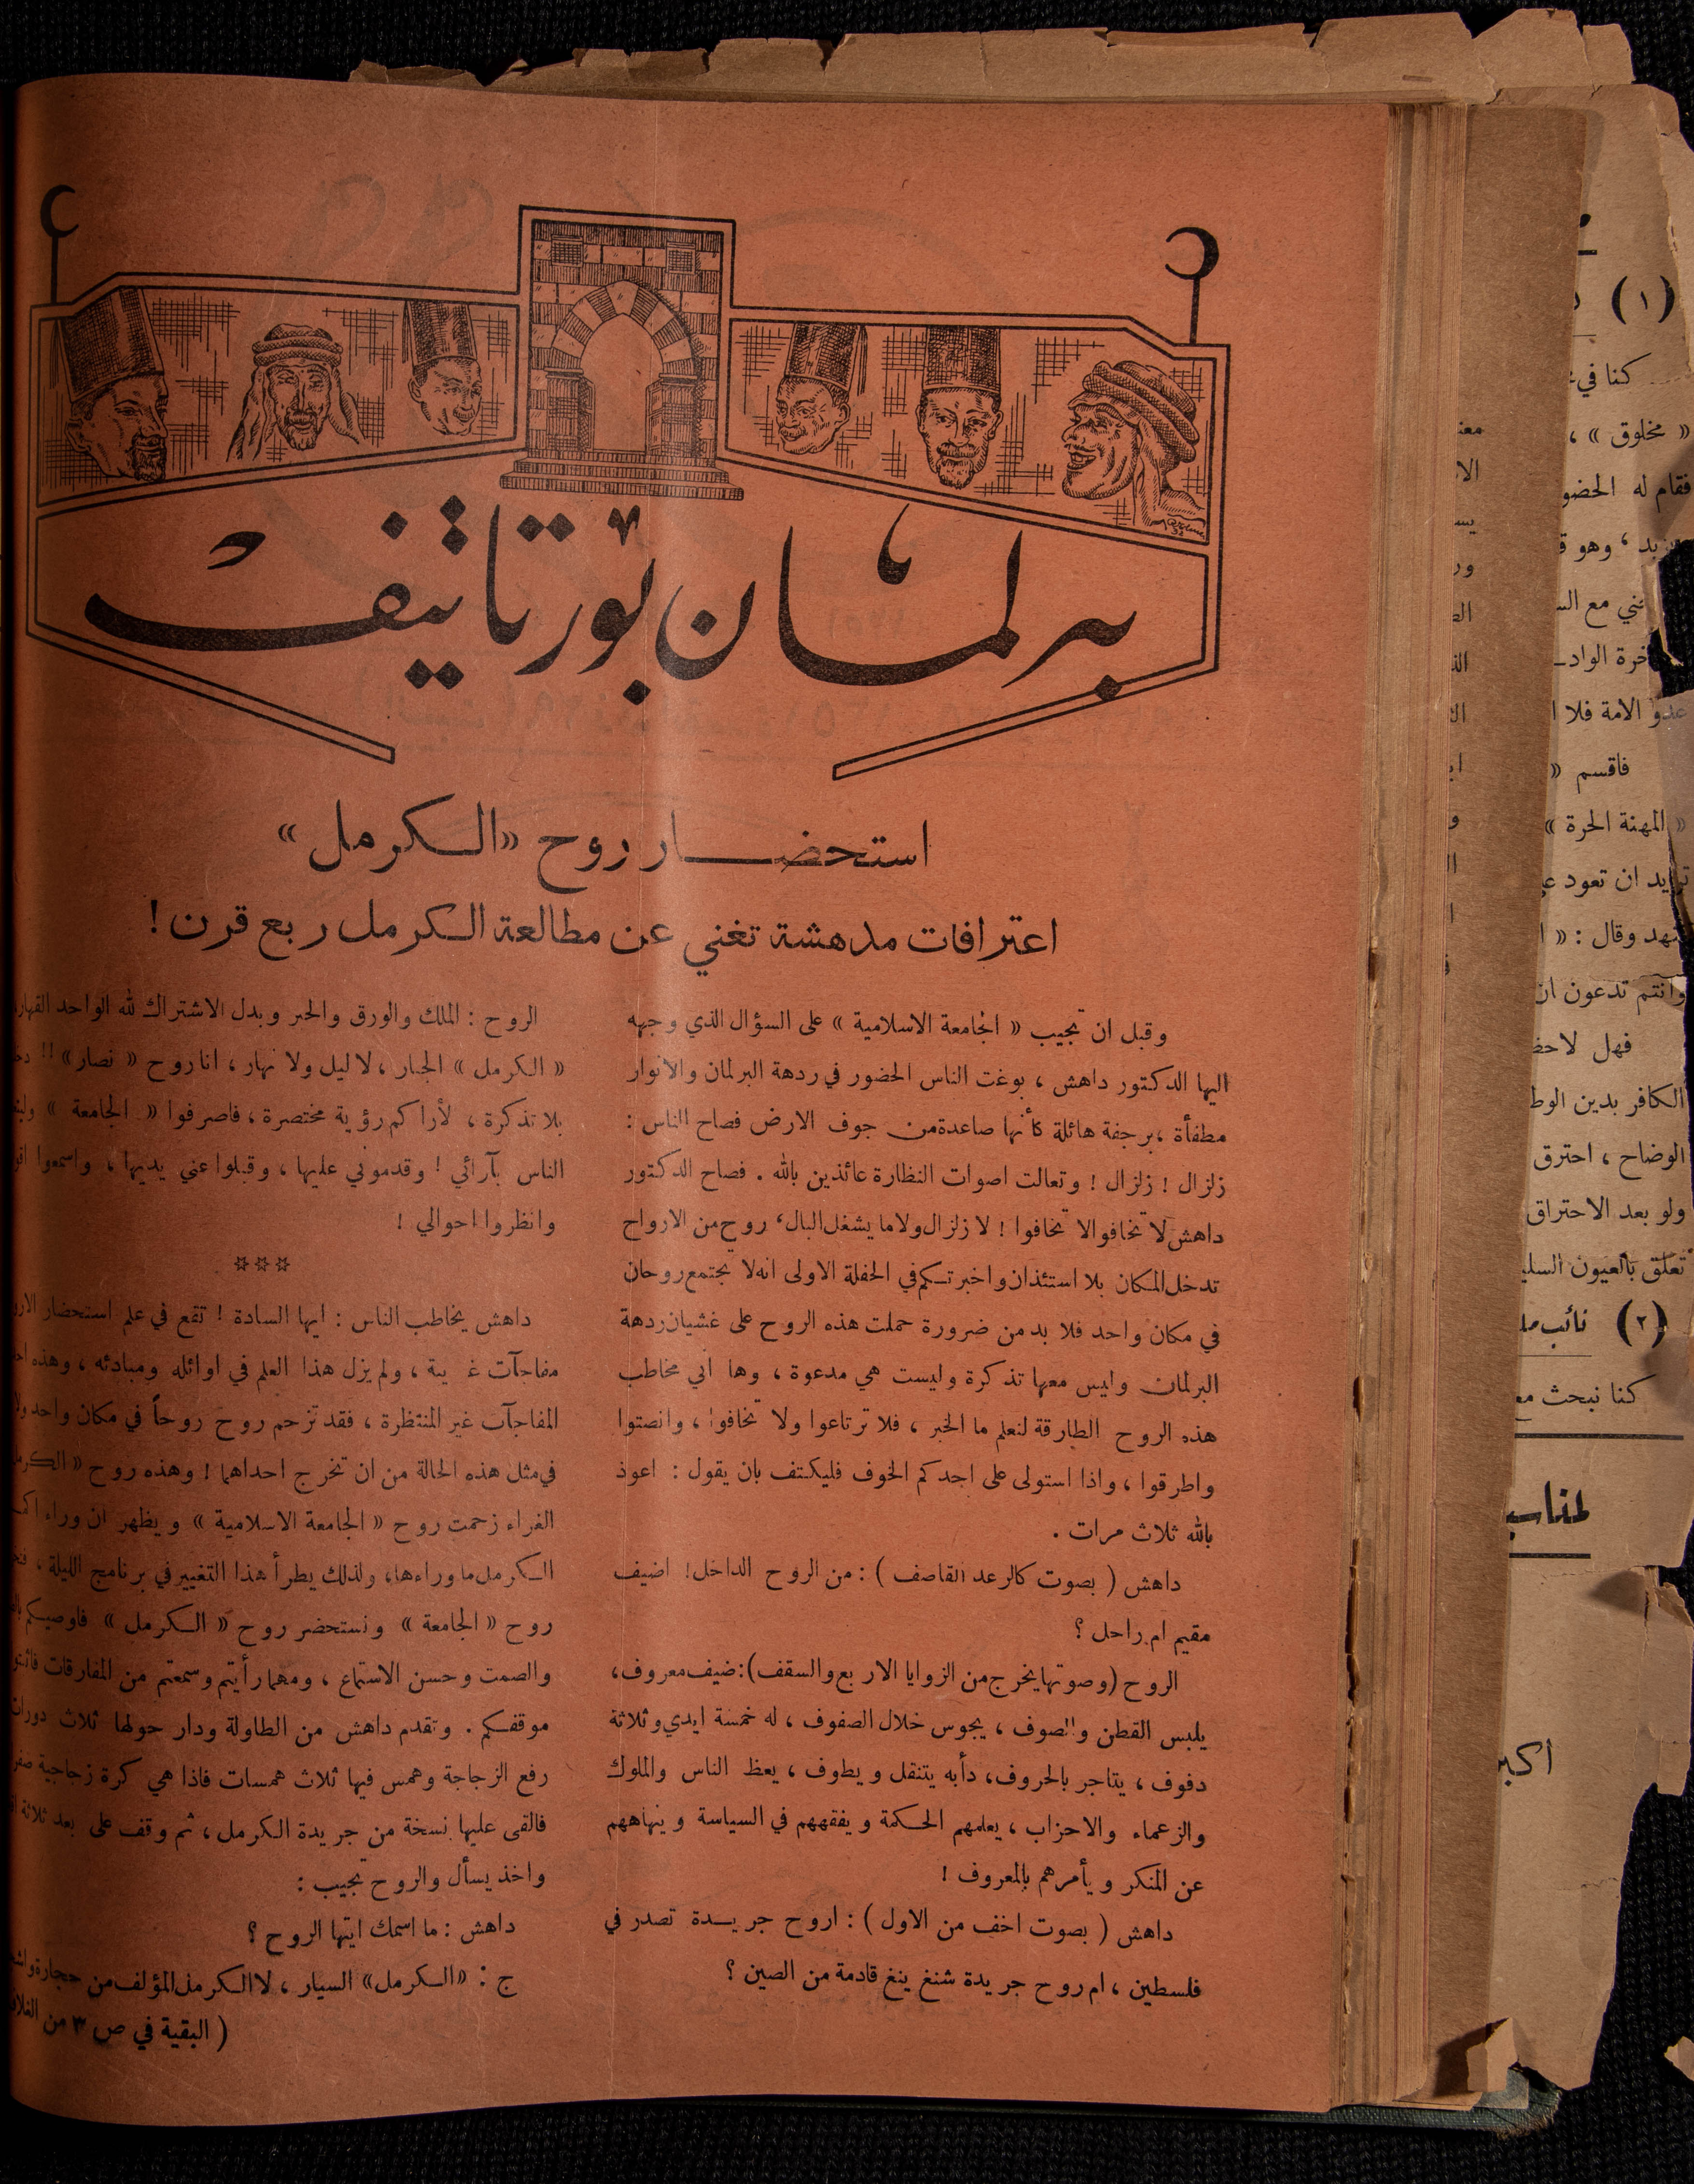 برلمان بورتاتيف
استحضار روح «الكرمل»
اعترافات مدهشة تغني عن مطالعة الكرمل ربع قرن !
وقبل ان تجيب « الجامعة الاسلامية » على السؤال الذي وجهه
اليها الدكتور داهش ، بوغت الناس الحضور في ردهة البرلمان والانوار
مطفأة ، برجفة هائلة كأنها صاعدة من جوف الارض فصاح الناس :
زلزال ! زلزال ! وتعالت اصوات النظارة عائذين بالله . فصاح الدكتور
داهش لا تخافوا الا تخافوا ! لا زلزال ولا ما يشغل البال ، روح من الارواح
تدخل المكان بلا استئذان واخبرتكم في الحفلة الاولى انه لا تجتمع روحان
في مكان واحد فلا بد من ضرورة حملت هذه الروح على غشيان ردهة
البرلمان وليس معها تذكرة وليست هي مدعوة ، وها اني مخاطب
هذه الروح الطارقة لنعلم ما الخبر ، فلا ترتاعوا ولا تخافوا ، وانصتوا
واطرقوا ، واذا استولى على احدكم الخوف فليكتف بان يقول : اعوذ
بالله ثلاث مرات .
داهش ( بصوت كالرعد القاصف ) : من الروح الداخل ! اضيف
مقيم ام راحل ؟
الروح (وصوتها يخرج من الزوايا الاربع والسقف) : ضيف معروف ،
يلبس القطن والصوف ، يجوس خلال الصفوف ، له خمسة ايدي وثلاثة
دفوف ، يتاجر بالحروف ، دأبه يتنقل ويطوف ، يعظ الناس والملوك
والزعماء والاحزاب ، يعلمهم الحكمة ويفقههم في السياسة وينهاهم
عن المنكر ويأمرهم بالمعروف !
داهش ( بصوت اخف من الاول ) : اروح جريدة تصدر في
فلسطين ، ام روح جريدة شنغ ينغ قادمة من الصين ؟
الروح : الملك والورق والحبر وبدل الاشتراك لله الواحد القهار
« الكرمل » الجبار ، لا ليل ولا نهار ، انا روح « نصار » !!
بلا تذكرة ، لأراكم رؤية مختصرة ، فاصرفوا « الجامعة »
الناس بآرائي ! وقدموني عليها ، وقبلوا عني يديها ، واسمعوا
وانظروا احوالي !
***
داهش يخاطب الناس : ايها السادة ! تقع في علم استحضار
مفاجآت غريبة ، ولم يزل هذا العلم في اوائله ومبادئه ، وهذه
المفاجآت غير المنتظرة ، فقد تزحم روح روحاً في مكان واحد
في مثل هذه الحالة من ان تخرج احداهما ! وهذه روح «
الغراء زحمت روح « الجامعة الاسلامية » ويظهر ان وراء
الكرمل ما وراءها ، ولذلك يطرأ هذا التغيير في برنامج الليلة ،
روح « الجامعة » ونستحضر روح « الكرمل » فاوصيكم
والصمت وحسن الاستماع ، ومهما رأيتم وسمعتم من المفارقات
موقفكم . وتقدم داهش من الطاولة ودار حولها ثلاث دورات
رفع الزجاجة وهمس فيها ثلاث همسات فاذا هي كرة زجاجية
فالقى عليها نسخة من جريدة الكرمل ، ثم وقف على بعد ثلاثة
واخذ يسأل والروح تجيب :
داهش : ما اسمك ايتها الروح ؟
ج : «الكرمل» السيار ، لا الكرمل المؤلف من حجارة
( البقية في ص ٣ من
( ١ )
كنا في
« مخلوق » ،
فقام له الحضو
وهو
ني مع
خرة
عدو الامة فلا
فاقسم «
« المهنة الحرة »
تريد ان تعود
وقال : «
وانتم تدعون ان
فهل
الكافر بدين
الوضاح ، احترق
ولو بعد الاحتراق
تعلق بالعيون
( ٢ ) نائب
كنا نبحث